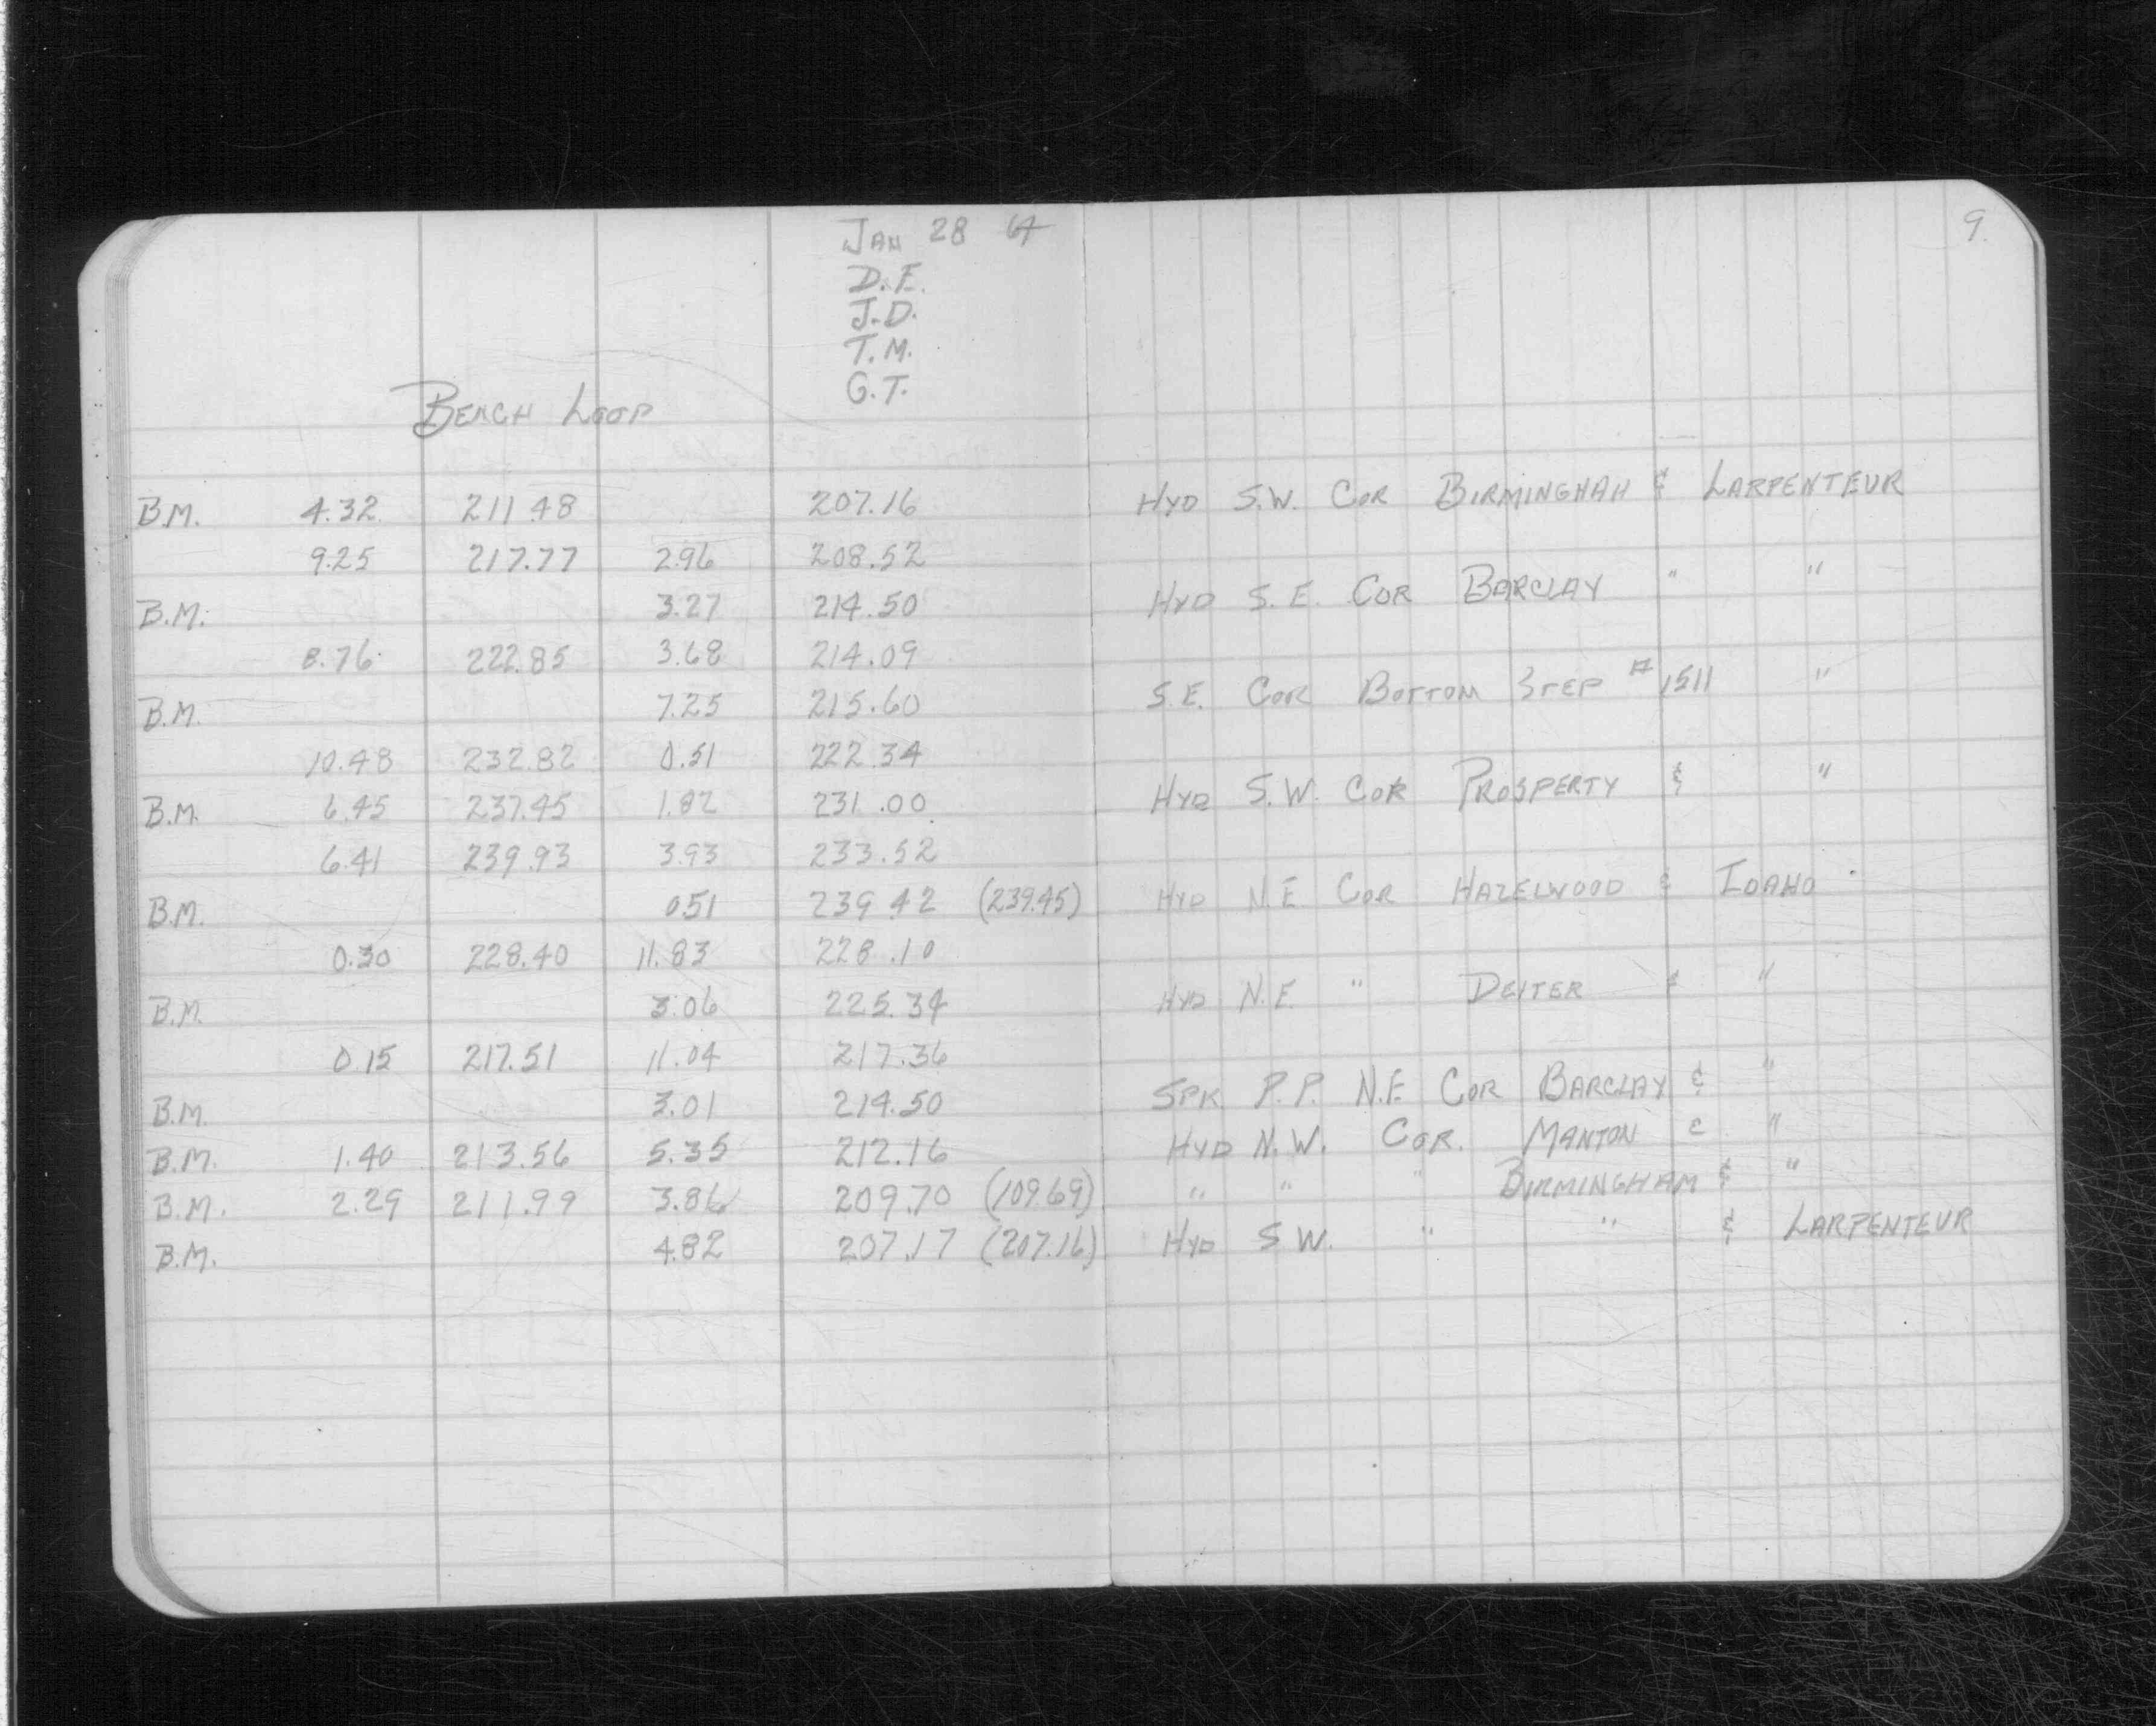 JAN 28 64
9.
D.E.
J.D.
T.M.
G.T.
BENCH LOOP
B.M. 4.32 211.48 207.16 HYD S.W. COR BIRMINGHAM & LARPENTEUR
9.25 217.77 2.96 208.52
B.M. 3.27 214.50 HYD S.E. COR BARCLAY " "
8.76 222.85 3.68 214.09
B.M. 7.25 215.60 S.E. COR BOTTOM STEP #1511 "
10.48 232.82 0.51 222.34
B.M. 6.45 237.45 1.82 231.00 HYD S.W. COR PROSPERTY & "
6.41 239.93 3.93 233.52
B.M. 0.51 239.42 (239.45) HYD N.E. COR HAZELWOOD & IDAHO
0.30 228.40 11.83 228.10
B.M. 3.06 225.34 HYD N.E. " DEITER & "
0.15 217.51 11.04 217.36
B.M. 3.01 214.50 SPK P.P. N.E. COR BARCLAY & "
B.M. 1.40 213.56 5.35 212.16 HYD N.W. COR. MANTON & "
B.M. 2.29 211.99 3.86 209.70 (109.69) " " " BIRMINGHAM & "
B.M. 4.82 207.17 (207.16) HYD S.W. " " & LARPENTEUR